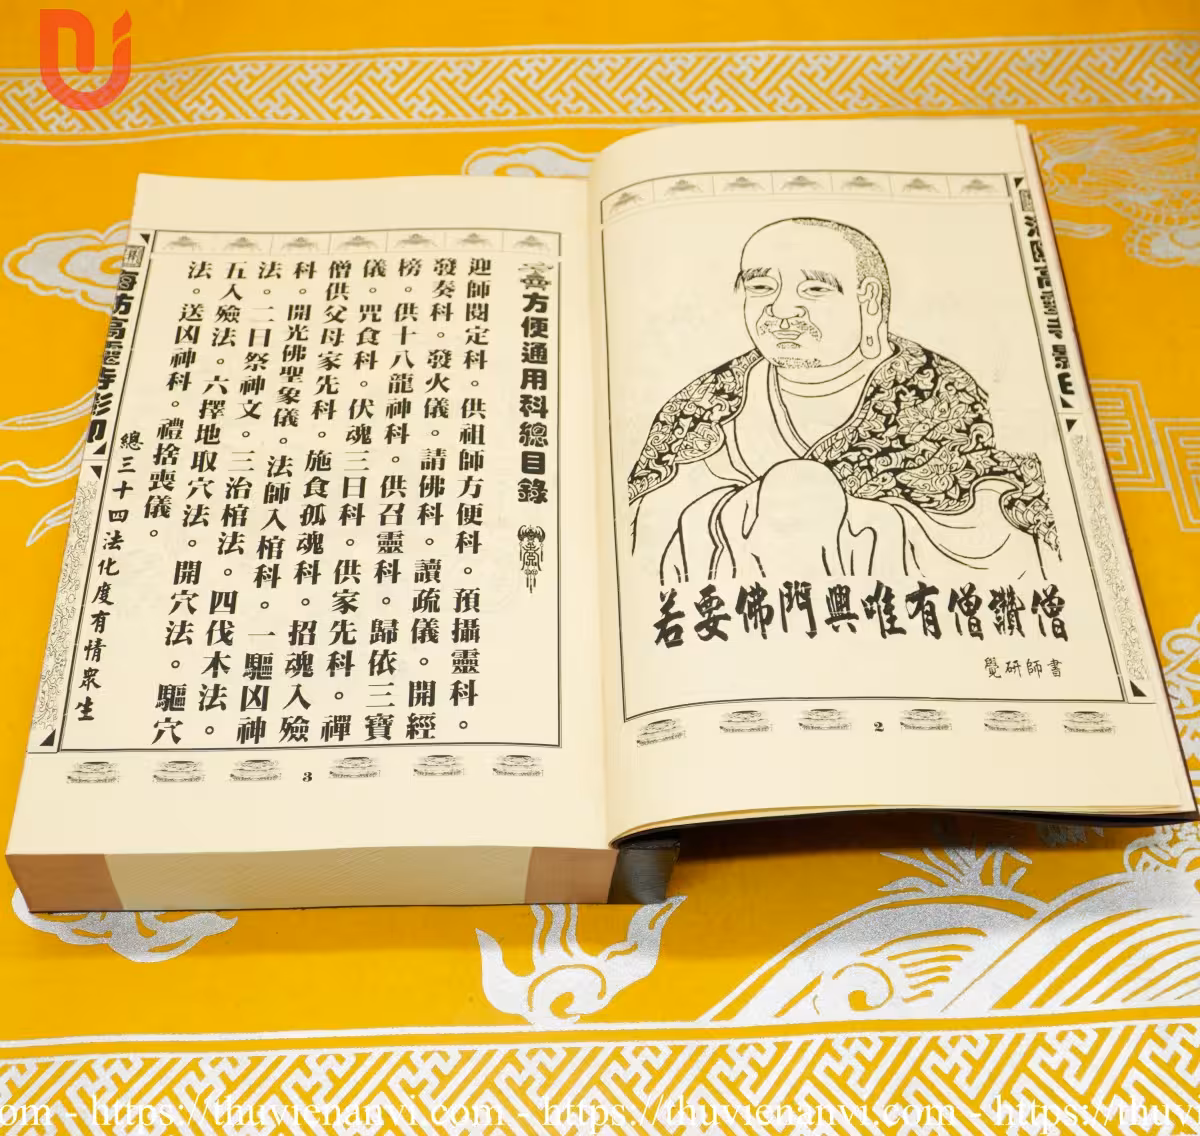 若要佛門興唯有僧讚僧
覺研師書
2
方便通用科總目錄
迎師閱定科。供祖師方便科。預攝靈科。
發奏科。發火儀。請佛科。讀疏儀。開經
榜。供十八龍神科。供召靈科。歸依三寶
儀。咒食科。伏魂三日科。供家先科。禪
僧供父母家先科。施食孤魂科。招魂入殮
科。開光佛聖象儀。法師入棺科。一驅凶神
法。二日祭神文。三治棺法。四伐木法。
五入殮法。六擇地取穴法。開穴法。驅穴
法。送凶神科。禮捨喪儀。
總三十四法化度有情眾生
海防高靈寺影印
3
om - https://thuvienanvi.com - https://thuvienanvi.com - https://thuv